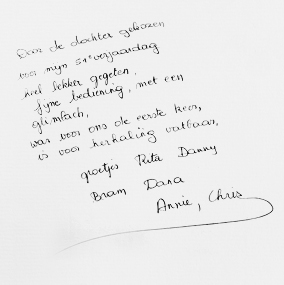 Door de dochter gekozen
voor mijn 51e verjaardag
heel lekker gegeten,
fijne bediening, met een
glimlach,
was voor ons de eerste keer,
is voor herhaling vatbaar,
groetjes Rita Danny
Bram Dana
Annie, Chris